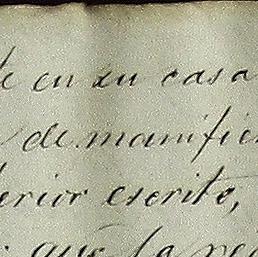 te en su casa
de manifie
terior escrito,
que la re